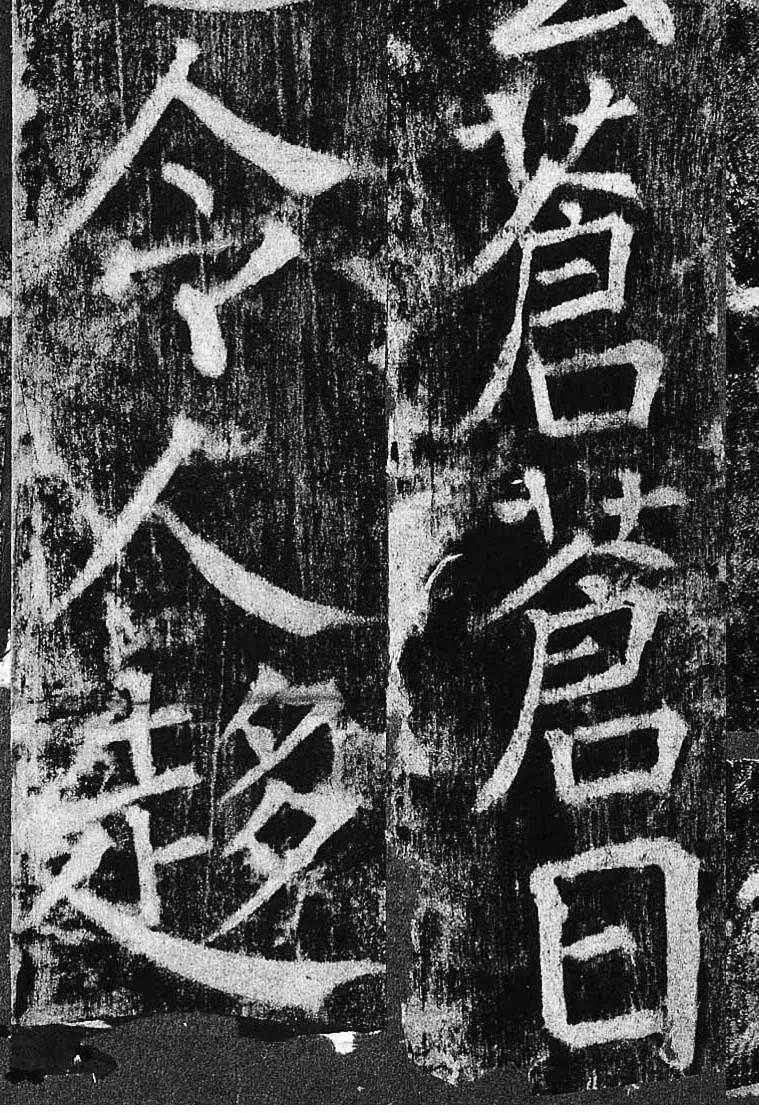 蒼蒼日
令人趍